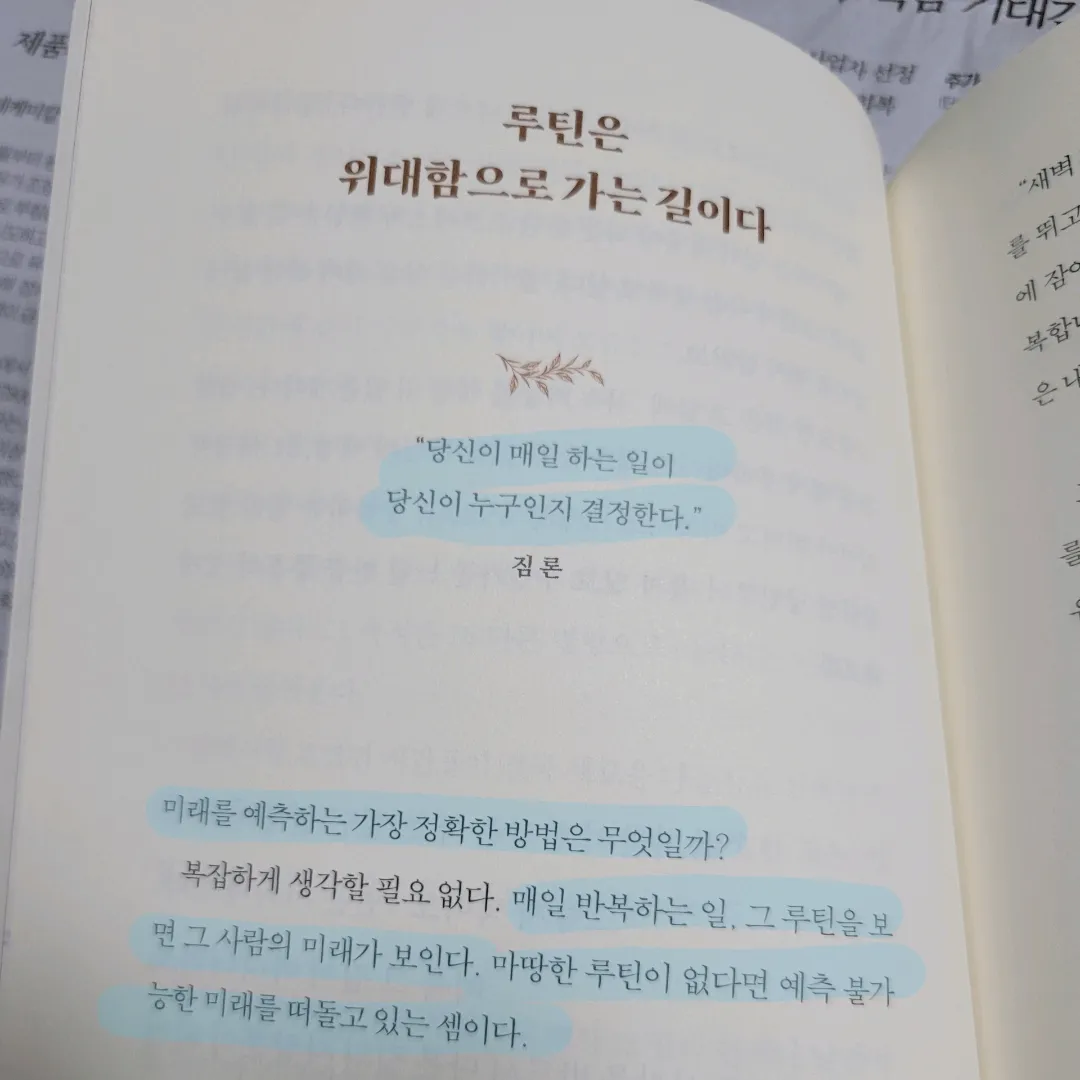 제품
사업자 선정
루틴은
위대함으로 가는 길이다
“당신이 매일 하는 일이
당신이 누구인지 결정한다.”
짐 론
미래를 예측하는 가장 정확한 방법은 무엇일까?
복잡하게 생각할 필요 없다. 매일 반복하는 일, 그 루틴을 보
면 그 사람의 미래가 보인다. 마땅한 루틴이 없다면 예측 불가
능한 미래를 떠돌고 있는 셈이다.
“새벽
를 뛰고
에 잠
복합니
은 나
를